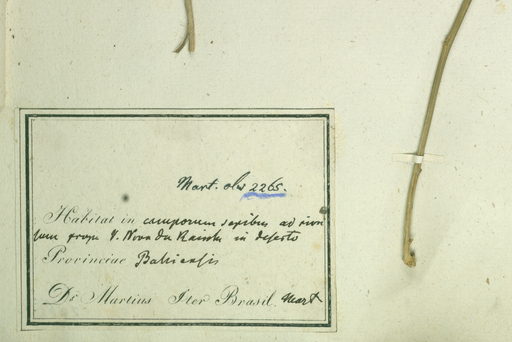 Mart. obs 2265.
Habitat in camporum sepibus ad
prope V. Nova da Rainha in deserto
Provinciae Bahiensis
Dr Martius Iter Brasil. Mart